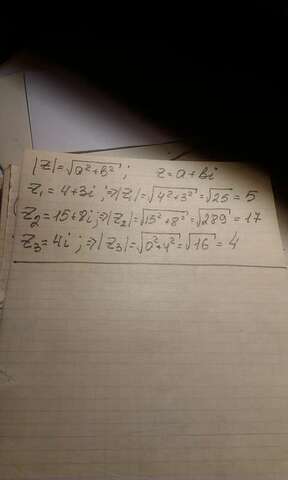 |Z|=√a²+b² ; z=a+bi
Z₁=4+3i ;⇒|Z₁|=√4²+3²=√25=5
Z₂=15+8i;⇒|Z₂|=√15²+8²=√289=17
Z₃=4i ;⇒|Z₃|=√0²+4²=√16=4